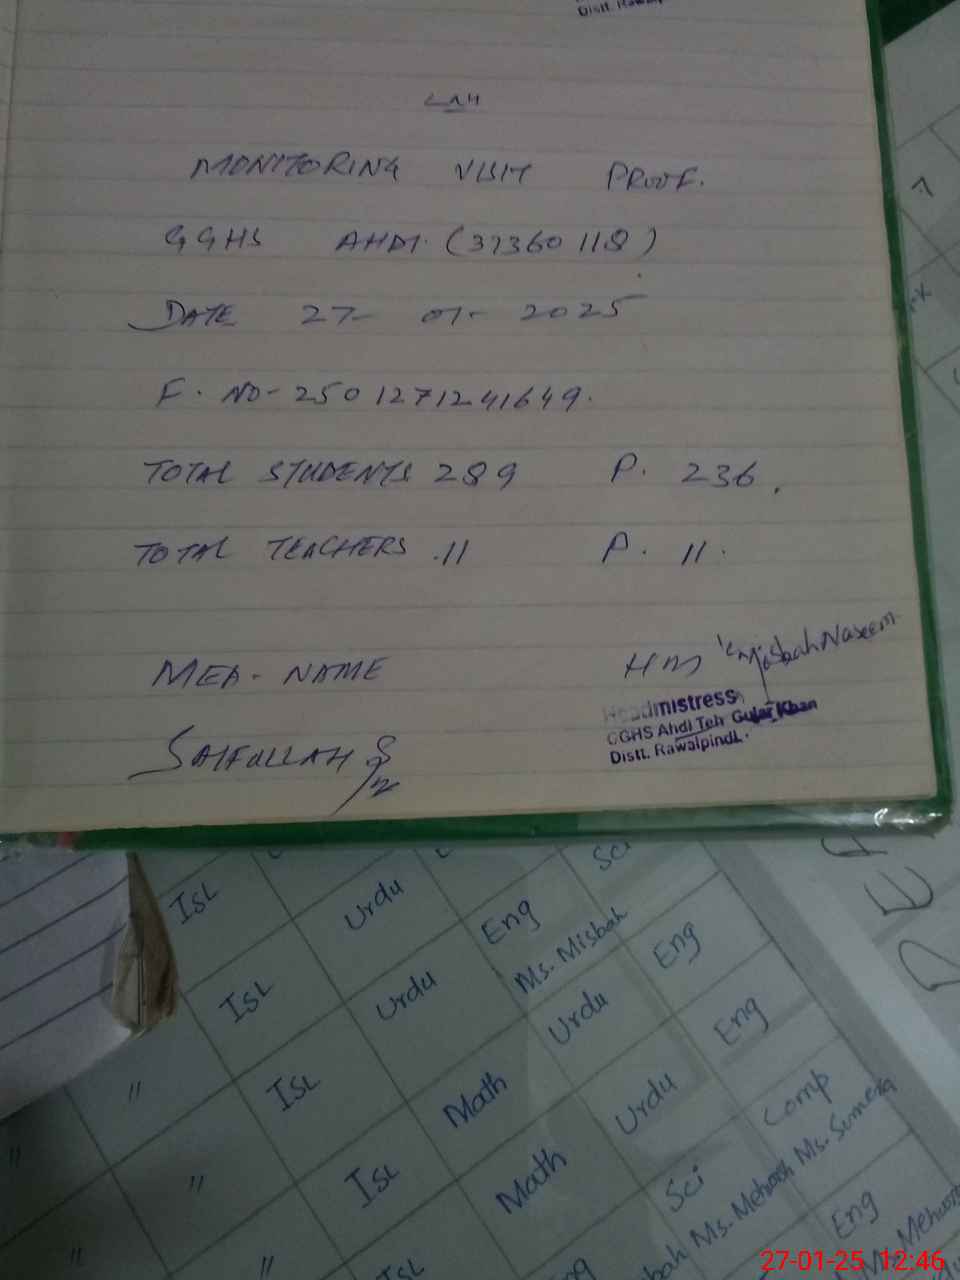 Distt. Rawalpindi
MONITORING VISIT PROOF.
GGHS AHDI. (37360118)
DATE 27- 01- 2025
F. NO- 2501271241649.
TOTAL STUDENTS 289 P. 236.
TOTAL TEACHERS .11 P. 11.
MEA- NAME HM Misbah Naseem
SAIFULLAH
Headmistress
GGHS Ahdi Teh Gujar Khan
Distt. Rawalpindi.
Sci
Isl Urdu Eng
Ms. Misbah
Isl Urdu Urdu Eng
" Isl Math Urdu Eng
" " Isl Math Sci Comp
Ms. Mehwish Ms. Sumera
" " Isl Eng Eng
27-01-25 12:46